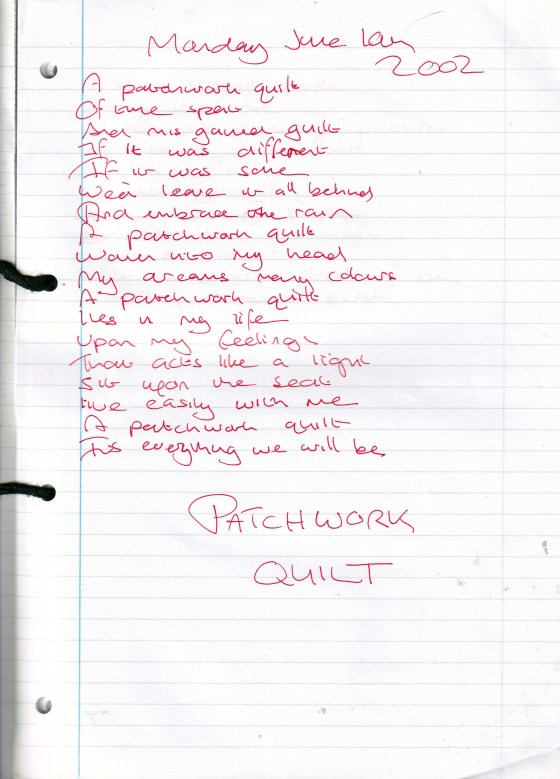 Monday June
2002
A patchwork quilt
Of time spent
And this gained guilt
If it was different
If it was same
We'd leave it all behind
And embrace the rain
A patchwork quilt
Woven into my head
My dreams many colours
A patchwork quilt
Lies in my life
Upon my feelings
That acts like a light
Sit upon the seat
Live easily with me
A patchwork quilt
It's everything we will be
PATCHWORK
QUILT